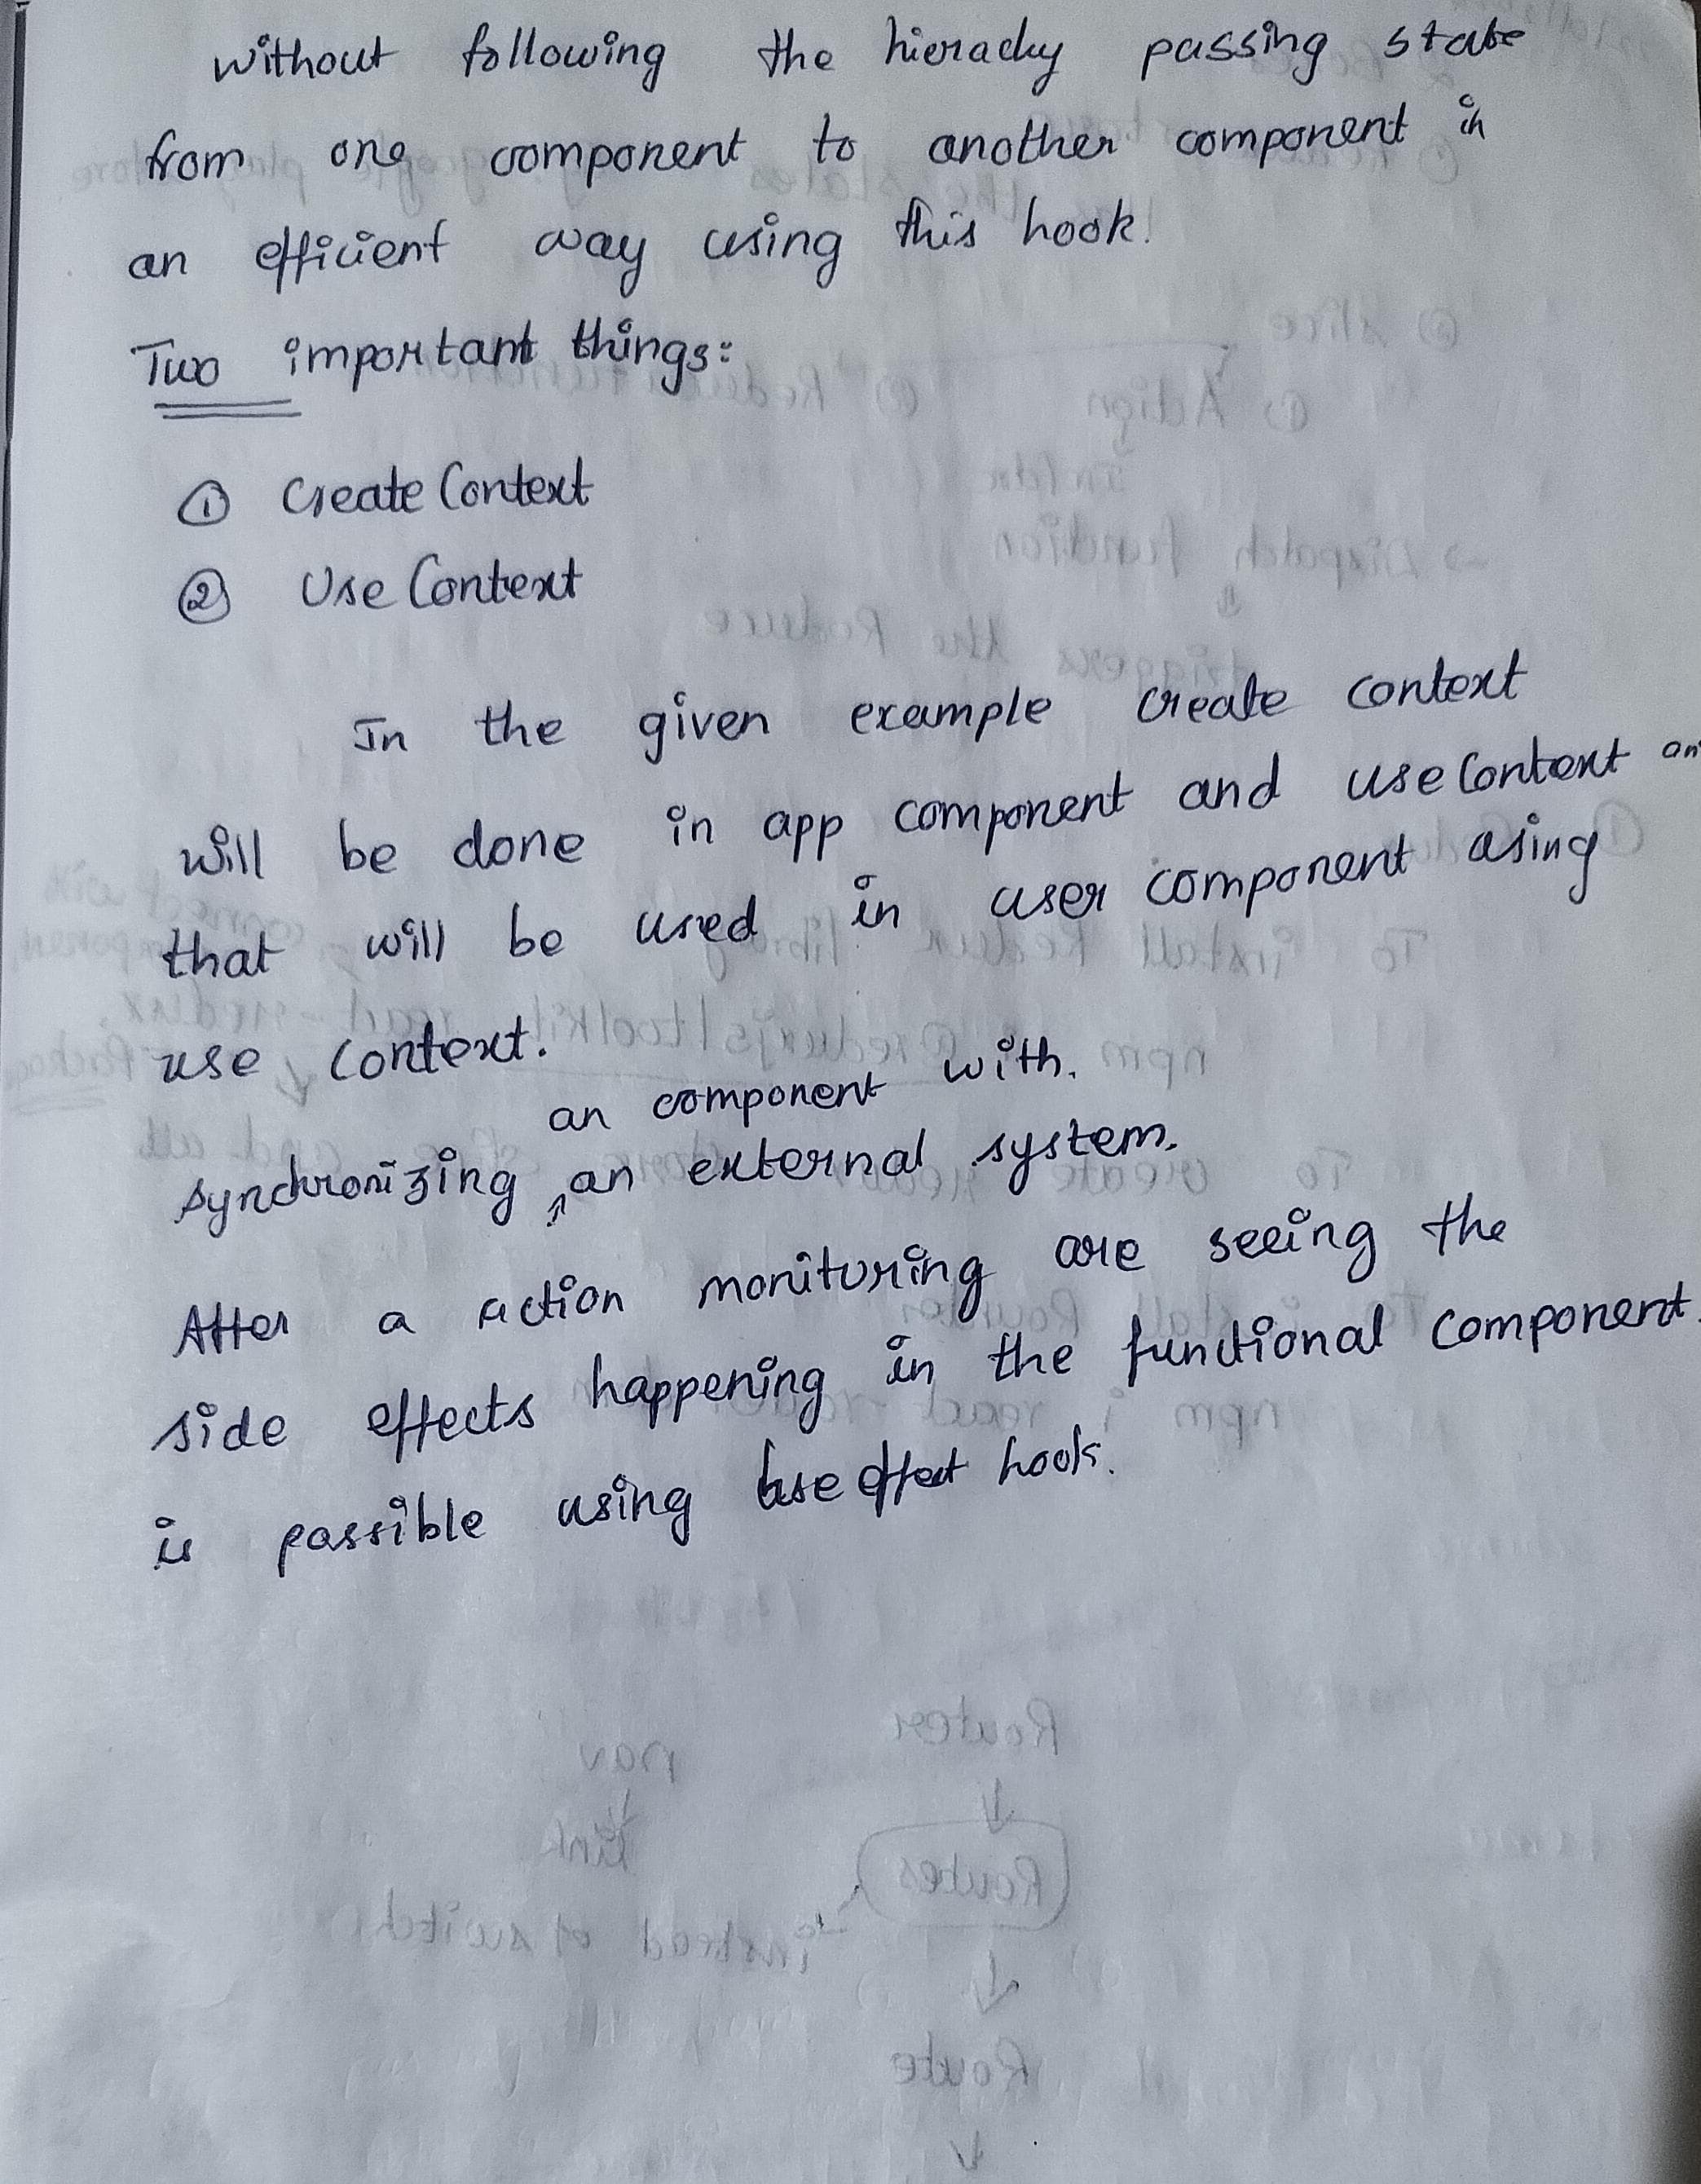 without following the hierachy passing state
from one component to another component in
an efficient way using this hook.
Two important things:
① Create Context
② Use Context
In the given example create context
will be done in app component and use Context an
that will be used in user component using
use context.
an component with.
synchronizing an external system.
After a action monitoring are seeing the
side effects happening in the functional component.
is possible using use effect hook.